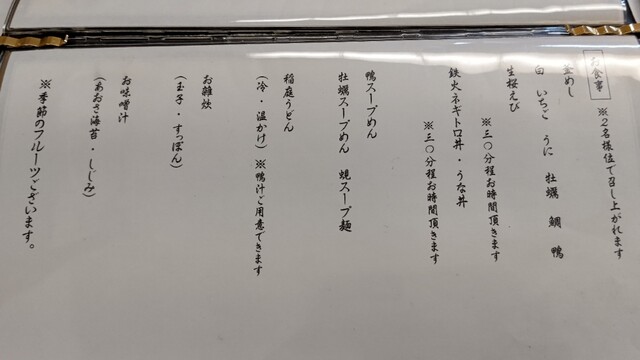 お食事 ※2名様位で召し上がれます
釜めし
白 いちご うに 牡蠣 鯛 鴨
生桜えび
※三〇分程お時間頂きます
鉄火ネギトロ丼・うな丼
※三〇分程お時間頂きます
鴨スープめん
牡蠣スープめん 蜆スープ麺
稲庭うどん
(冷・温かけ)※鴨汁ご用意できます
お雑炊
(玉子・すっぽん)
お味噌汁
(あおさ海苔・しじみ)
※季節のフルーツございます。